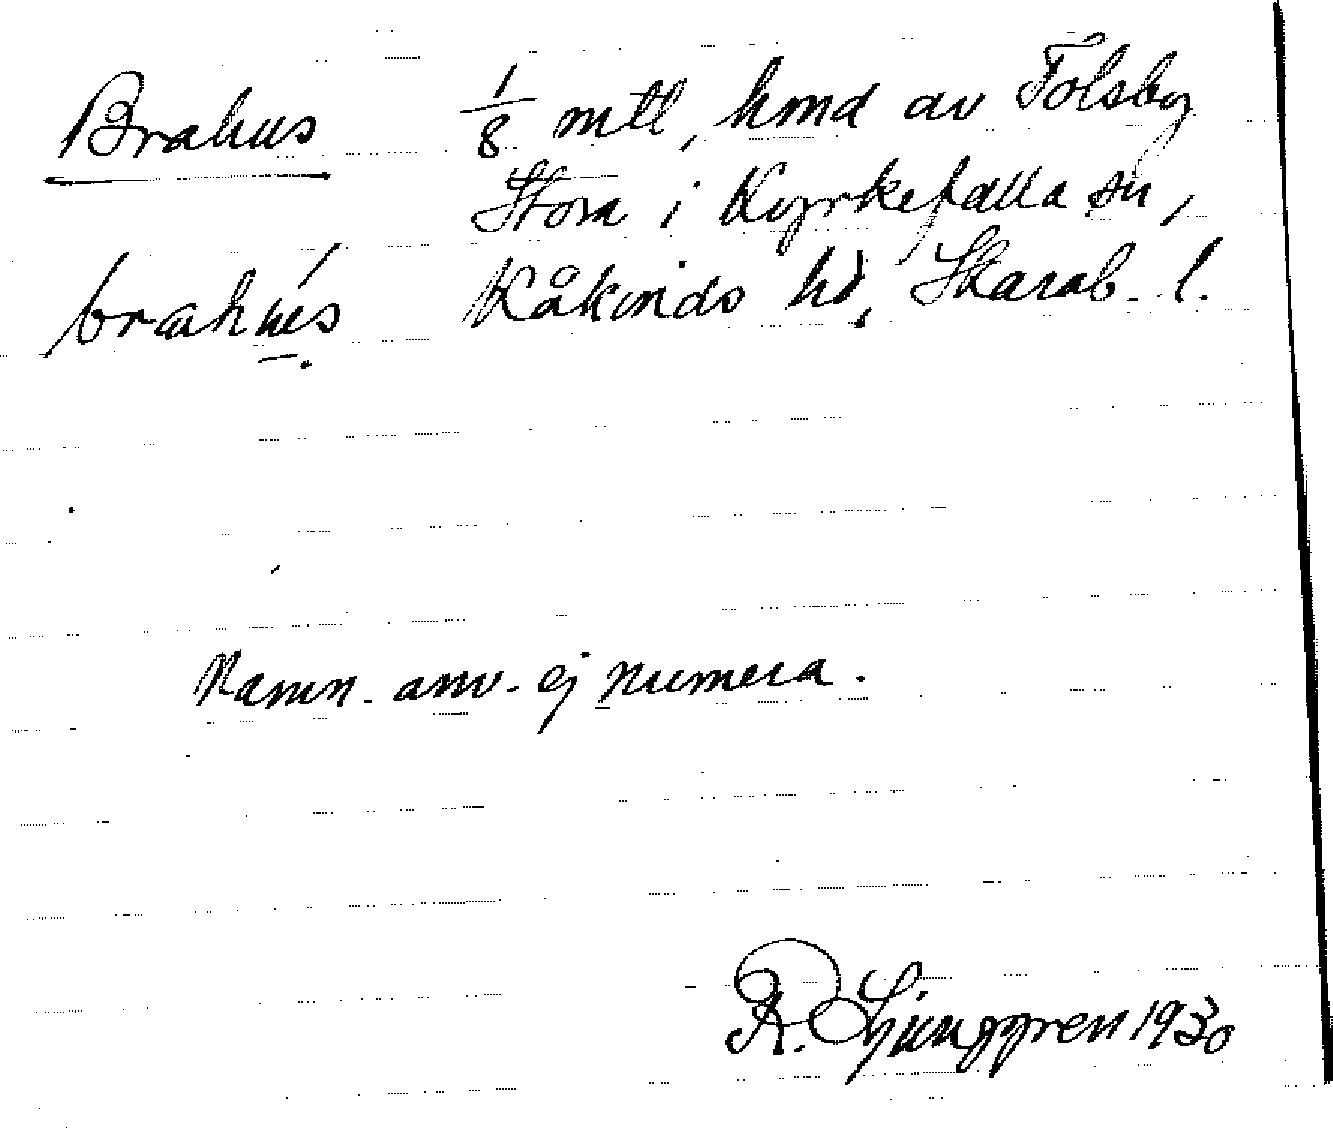 Brahus 1/8 mtl, hmd av Folsby
Stora i Kyrkefalla sn,
brahus Kåkinds hd, Skarab. l.
Namn. anv. ej numera.
R. Ljunggren 1930